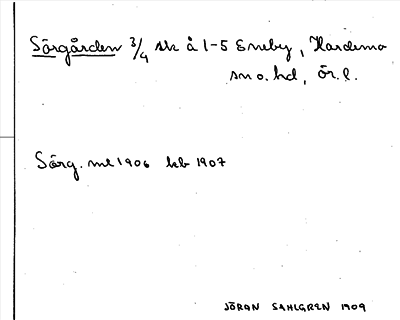 Sörgården 3/4 sk å 1-5 Eneby, Hardemo
sn o. hd, Ör. l.
Sörg. ml 1906 kb 1907
JÖRAN SAHLGREN 1909